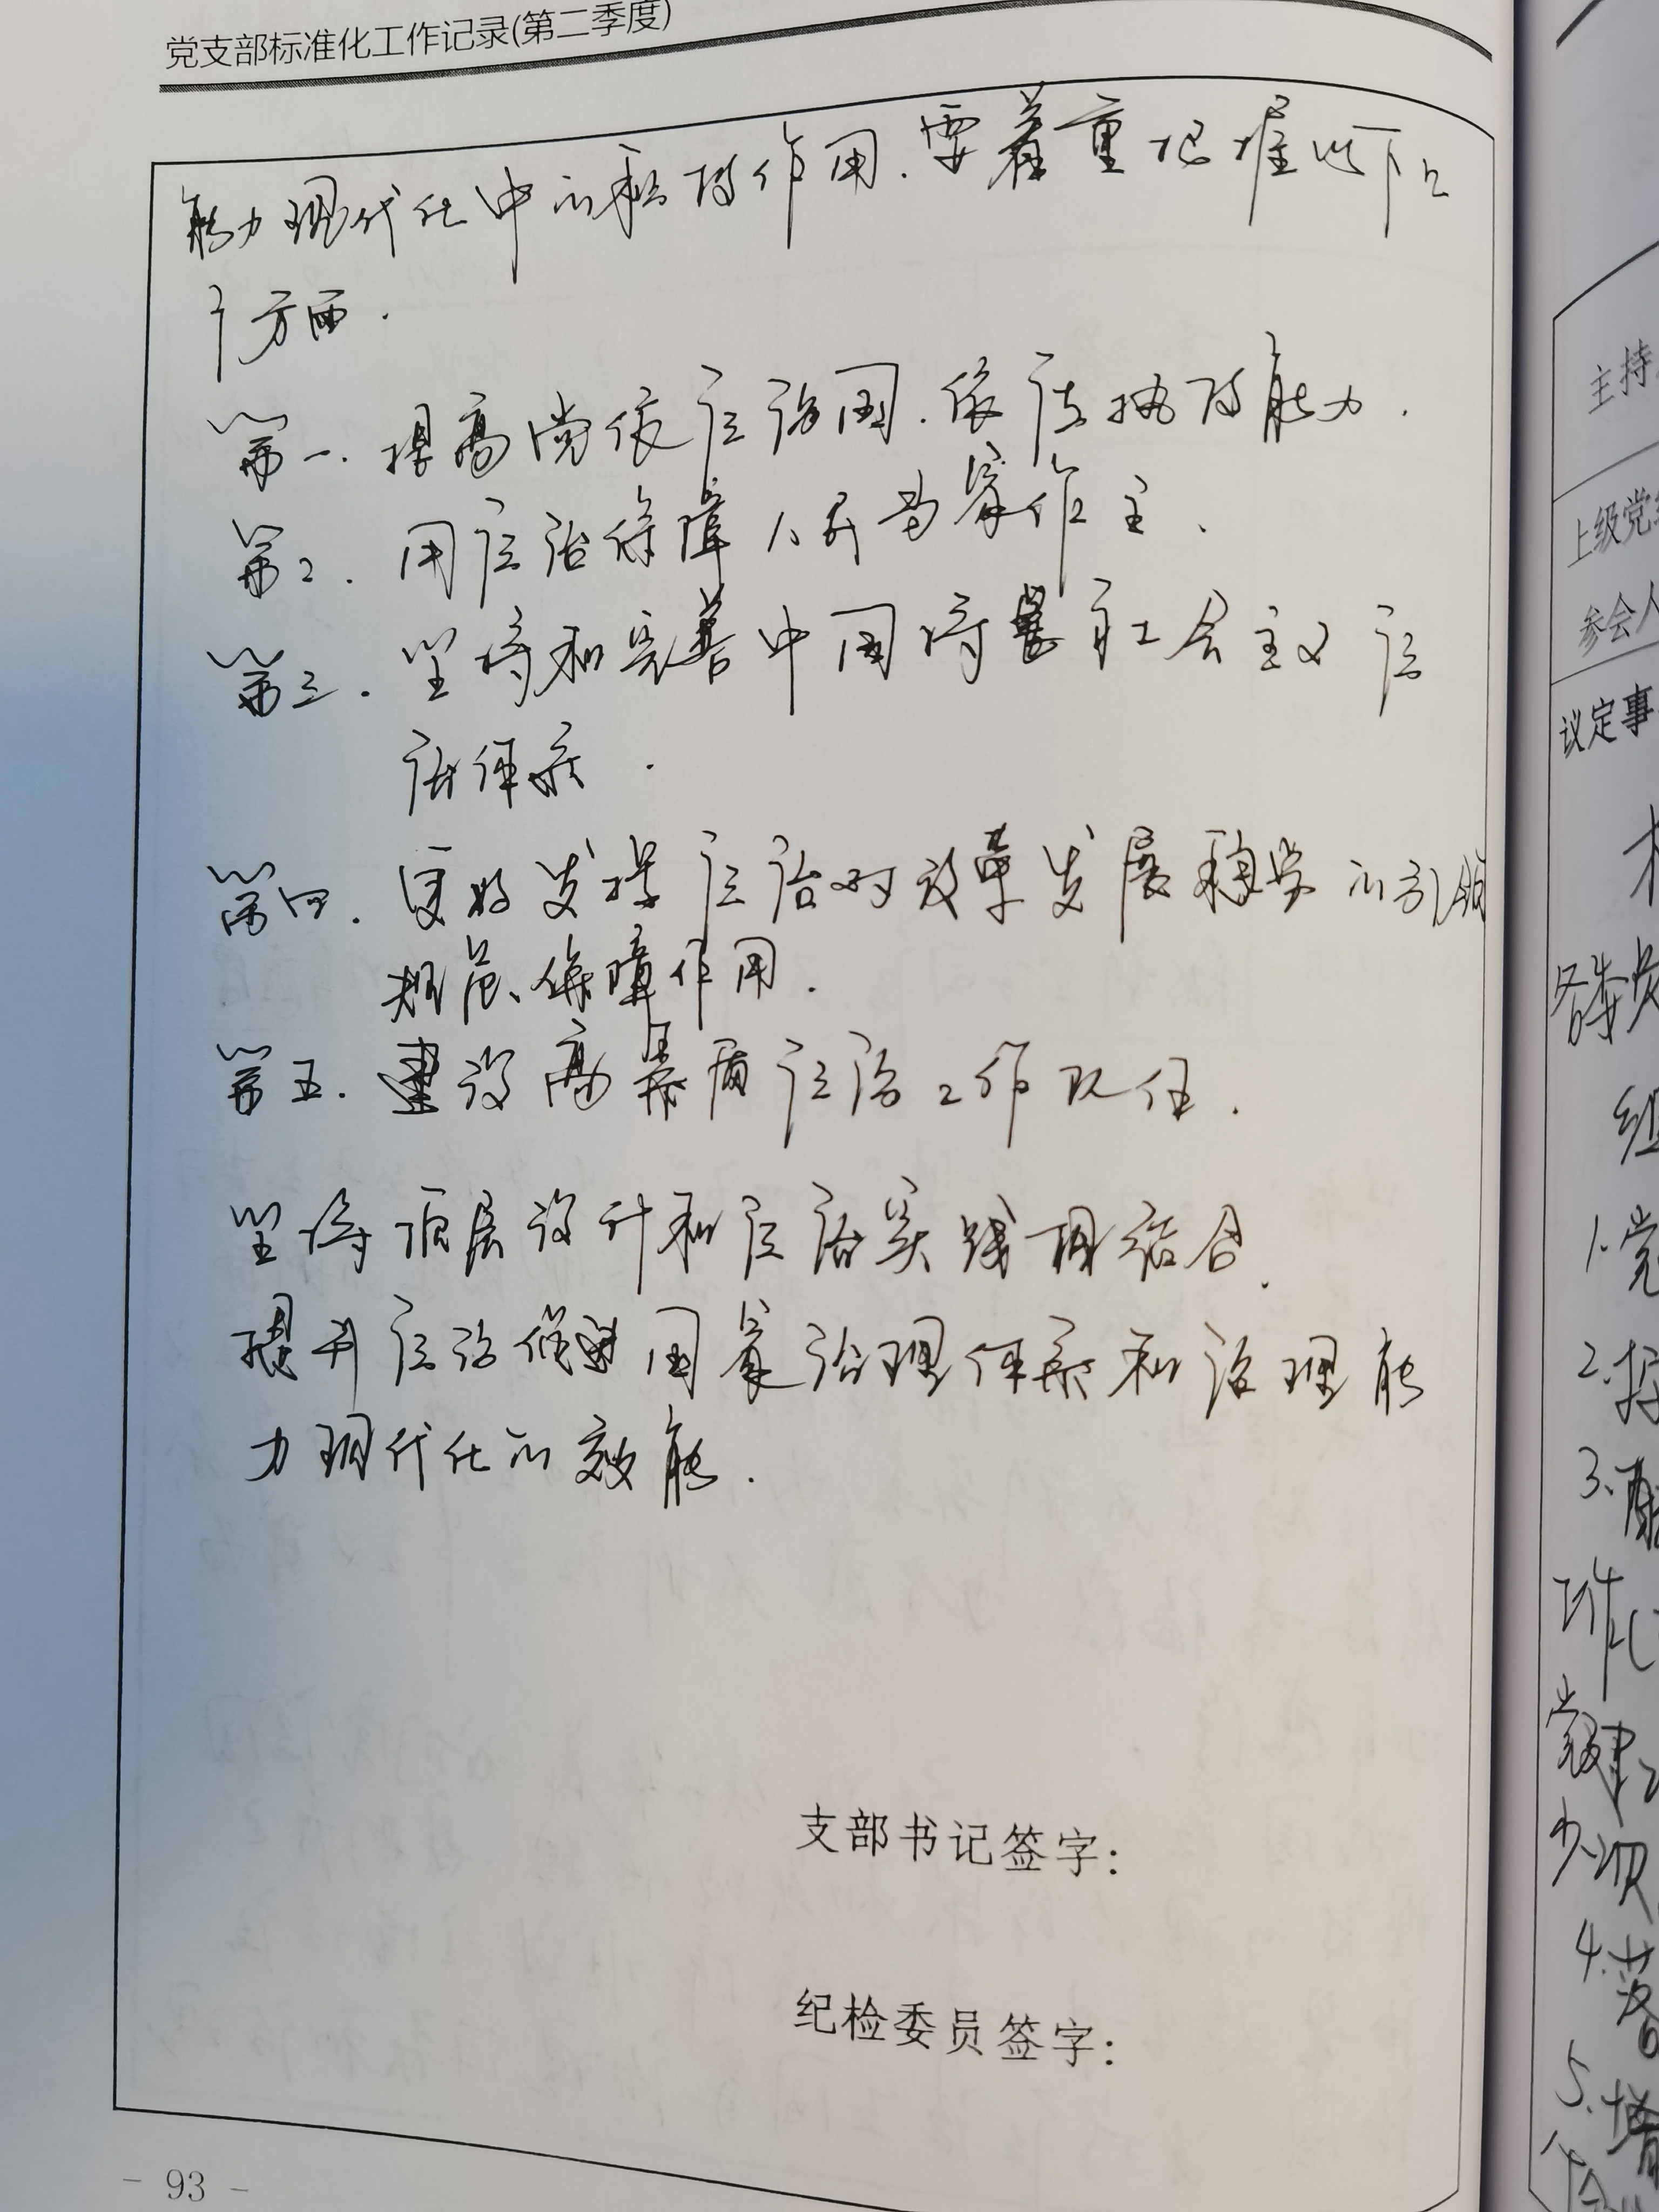 党支部标准化工作记录(第二季度)
能力现代化中的积极作用.要着重把握以下几
个方面.
第一.提高党依法治国.依法执政能力.
第二.用法治保障人民当家作主.
第三.坚持和完善中国特色社会主义法
治体系.
第四.更好发挥法治对改革发展稳定的引领
规范、保障作用.
第五.建设高素质法治工作队伍.
坚持顶层设计和法治实践相结合.
提升法治促进国家治理体系和治理能
力现代化的效能.
支部书记签字:
纪检委员签字:
- 93 -
主持
上级党
参会人
议定事
各委
组
1.党
2.
3.
党建
4.落
5.增